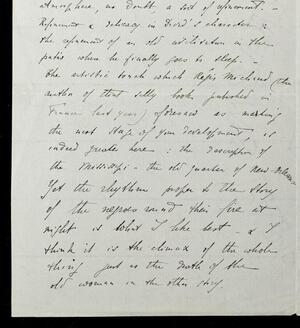 atmosphere, no doubt, a sort of refinement -
Refinement & delicacy in David's character:
the refinement of an old civilisation in the
patio where he finally goes to sleep. -
The artistic touch which Régis Michaud (the
author of that silly book published in
France last year) foresaw as marking
the next stage of your development, is
indeed greater here: the description of
the Mississipi - the old quarter of New-Orleans.
Yet the rhythm proper to the story
of the negroes round their fire at
night is what I like best - & I
think it is the climax of the whole
thing just as the death of the
old woman in the other story.